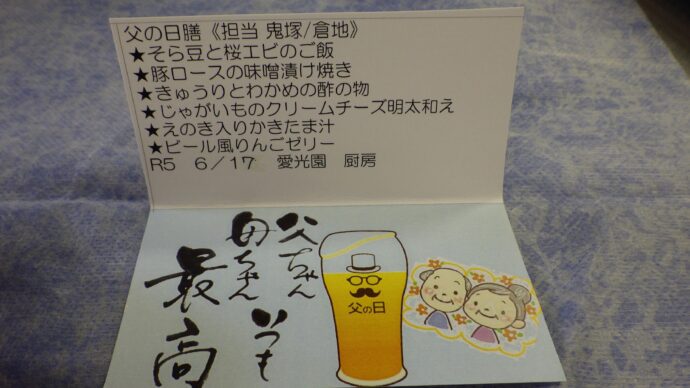 父の日膳《担当 鬼塚/倉地》
★そら豆と桜エビのご飯
★豚ロースの味噌漬け焼き
★きゅうりとわかめの酢の物
★じゃがいものクリームチーズ明太和え
★えのき入りかきたま汁
★ビール風りんごゼリー
R5 6/17 愛光園 厨房
父ちゃん
母ちゃん
いつも
最高
父の日